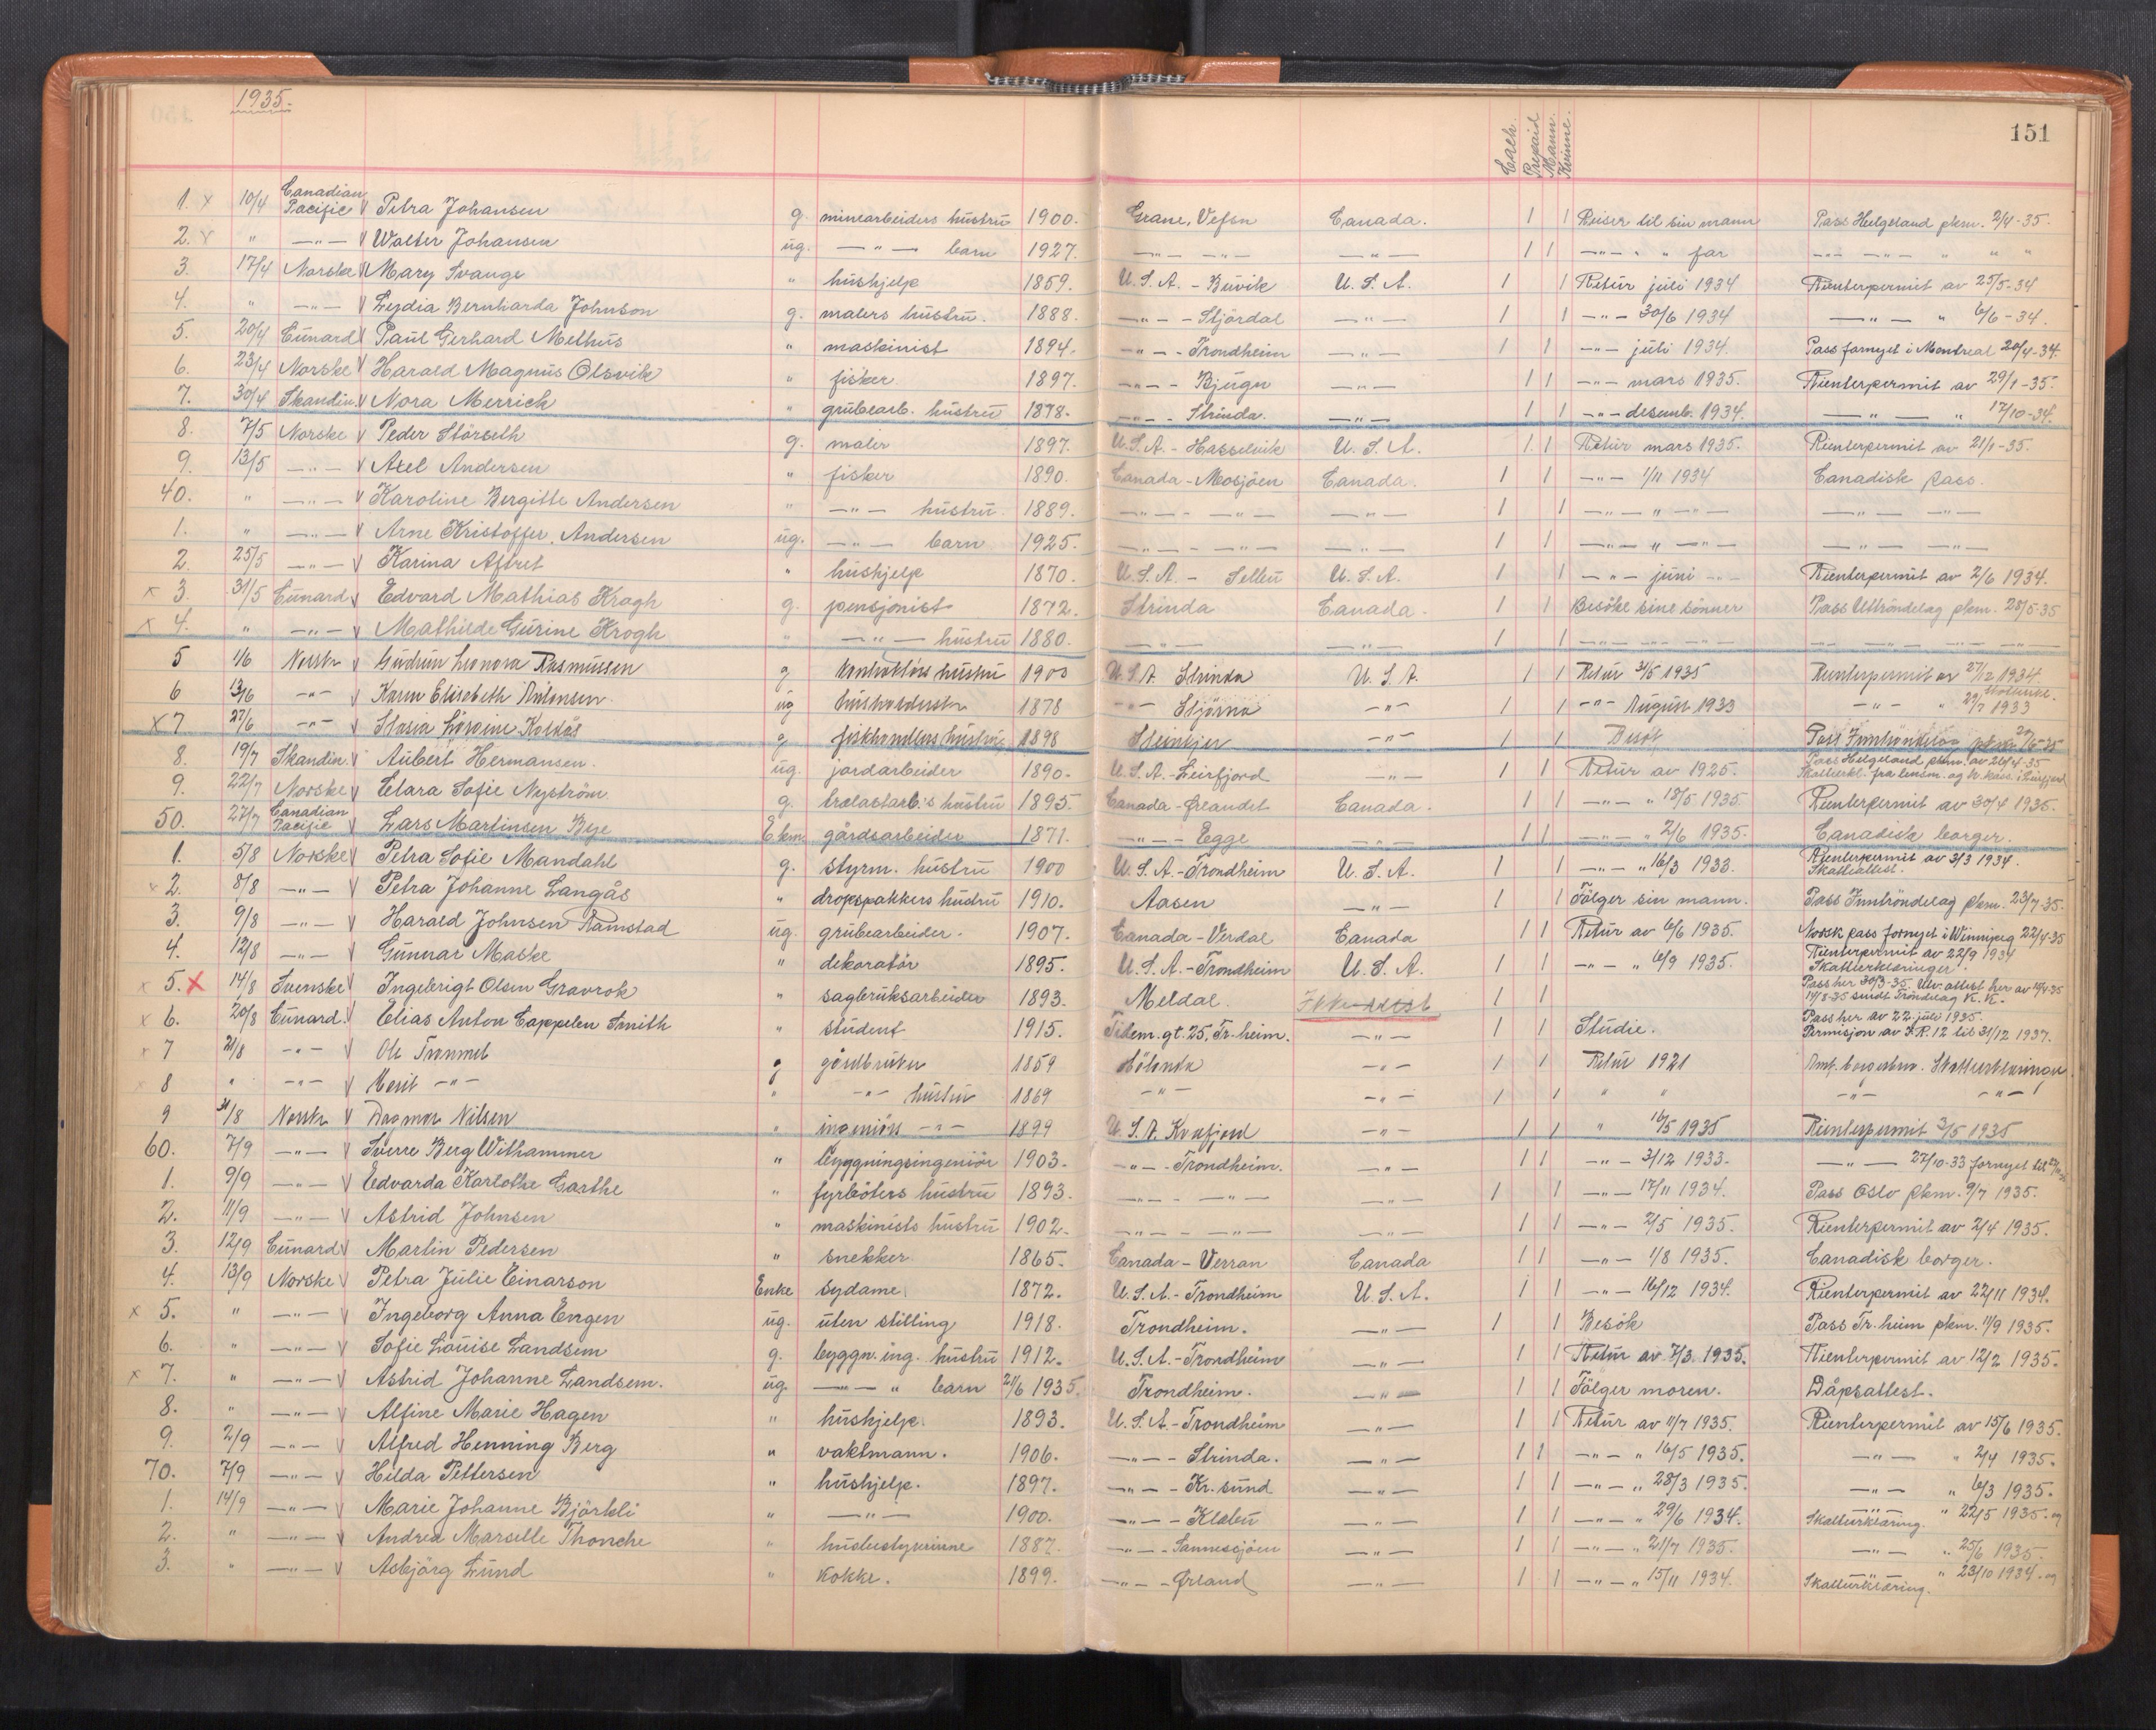 1935.
151
Cash. Prepaid Mann. Kvinne.
Canadian
1. x 10/4 Pacific V Petra Johansen g. minearbeiders hustru 1900. Grane, Vefsn Canada. 1 1 Reiser til sin mann Pass Helgeland pkm. 2/4-35.
2. x " —"— V Walter Johansen ug. —"— barn 1927. —"— —"— —"— 1 1 —"— " " far —"— —"— " " "
3. 17/4 Norske V Mary Svange " hushjelp 1859. U.S.A. - Buvik U.S.A. 1 1 Retur juli 1934 Rienterpermit av 25/5-34
4. " —"— V Lydia Bernharda Johnson g. malers hustru. 1888. —"— - Stjørdal —"— 1 1 —"— 30/6 1934 —"— " 6/6-34.
5. 20/4 Cunard V Paul Gerhard Melhus " maskinist 1894. —"— - Trondheim —"— 1 1 —"— juli 1934. Pass fornyet i Montreal 20/4-34.
6. 23/4 Norske V Harald Magnus Olsvik " fisker. 1897. —"— - Bjugn —"— 1 1 —"— mars 1935. Rienterpermit av 29/1-35.
7. 30/4 Skandin. V Nora Merrick " grubearb. hustru 1878. —"— - Strinda. —"— 1 1 —"— desemb. 1934. —"— " 17/10-34.
8. 7/5 Norske V Peder Störseth g. maler 1897. U.S.A. - Hasselvik U.S.A. 1 1 Retur mars 1935. Rienterpermit av 21/1-35.
9. 13/5 —"— V Axel Andersen " fisker 1890. Canada - Mosjöen Canada. 1 1 —"— 1/11 1934 Canadisk pass.
40. " —"— V Karoline Bergitte Andersen " —"— hustru. 1889. —"— - —"— —"— 1 1 —"— " —"— —"— —"—
1. " —"— V Arne Kristoffer Andersen ug. —"— barn 1925. —"— - —"— —"— 1 1 —"— " —"— —"— —"—
2. 25/5 —"— V Karina Aftret " hushjelp 1870. U.S.A. - Selbu U.S.A. 1 1 —"— juni —"— Rienterpermit av 2/6 1934.
x 3. 31/5 Cunard V Edvard Mathias Krogh g. pensjonist 1872. Strinda Canada. 1 1 Besöke sine sönner Pass Uttröndelag pkm. 28/5-35
x 4. " —"— V Mathilde Gurine Krogh " —"— hustru 1880. —"— —"— 1 1 —"— —"— —"— —"— —"— —"— —"—
5 1/6 Norske V Gudrun Leonora Rasmussen g kontraktörs hustru 1900 U.S.A. Strinda U.S.A. 1 1 Retur 31/5 1935 Reenterpermit av 27/12 1934
6 13/6 —"— V Karen Elisabeth Antonsen ug husholderske 1878 —"— Stjörna —"— 1 1 —"— August 1933 —"— " 29/7 1933
x 7 27/6 —"— V g fiskhandlers hustru 1898 Steinkjer —"— 1 1 Besök Pass Inntröndelag pkm. 29/6-35
8. 19/7 Skandin. V Aubert Hermansen. ug. jordarbeider 1890. U.S.A. - Leirfjord —"— 1 1 Retur av 1925. Pass Helgeland pkm. av 26/4-35
Skatteerkl. fra lensm. og kr.kass. i Leirfjord
9. 22/7 Norske V Clara Sofie Nyström g. trelastarb.s hustru 1895. Canada - Ørlandet Canada. 1 1 —"— " 18/5 1935. Rienterpermit av 30/4 1935.
Canadian
50. 27/7 Pacific V Lars Martinsen Bye Ekm. gårdsarbeider 1871. —"— - Egge —"— 1 1 —"— " 2/6 1935. Canadisk borger.
1. 5/8 Norske V Petra Sofie Mandahl g. styrm. hustru 1900 U.S.A. - Trondheim U.S.A. 1 1 —"— " 16/3 1933. Rienterpermit av 3/3 1934.
Skatteattest.
x 2. 8/8 —"— V Petra Johanne Langås " dropspakkers hustru 1910. Aasen —"— 1 1 Fölger sin mann. Pass Inntröndelag pkm. 23/7-35.
3. 9/8 —"— V Harald Johnsen Ramstad ug. grubearbeider. 1907. Canada - Verdal Canada 1 1 Retur av 6/6 1935. Norsk pass fornyet i Winnipeg 22/4-35
4. 12/8 —"— V Gunnar Maske " dekoratör 1895. U.S.A. - Trondheim U.S.A. 1 1 —"— " 6/9 1935. Rienterpermit av 22/9 1934
Skatteerklæringer.
x 5. x 14/8 Svenske V Ingebrigt Olsen Gravrok " sagbruksarbeider 1893. Meldal. Ikke reist 1 1 Pass her 30/3-35. Utv. attest her av 10/4-35
14/8-35 sendt Tröndelag K.K.
x 6. 20/8 Cunard. V Elias Anton Cappelen Smith " student 1915. Tidem.gt. 25, Tr.heim. —"— 1 1 Studie. Pass her av 22. juli 1935.
Permisjon av I.R. 12 til 31/12 1937.
x 7 21/8 —"— V Ole Trønmel g gårdbruker 1859 Hölonda —"— 1 1 Retur 1921 Skatteerklæringer
x 8 " —"— V Marit —"— " —"— hustru 1869 —"— —"— 1 1 " " —"— —"—
9 31/8 Norske V Dagmar Nilsen " ingeniörs —"— 1899 U.S.A. Kvæfjord —"— 1 1 " 16/5 1935 Reenterpermit 3/5 1935
60. 7/9 —"— V Sverre Berg Withammer " bygningsingeniör 1903. —"— - Trondheim. —"— 1 1 —"— 3/12 1933. —"— 27/10-33 fornyet til
1. 9/9 —"— V Edvarda Karlotte Garthe " fyrböters hustru 1893. —"— - —"— —"— 1 1 —"— 17/11 1934. Pass Oslo pkm. 9/7 1935.
2. 11/9 —"— V Astrid Johnsen " maskinists hustru 1902. —"— - —"— —"— 1 1 —"— 2/5 1935. Rienterpermit av 2/4 1935.
3. 12/9 Cunard V Martin Pedersen " snekker. 1865. Canada - Verran Canada 1 1 —"— 1/8 1935. Canadisk borger.
4. 13/9 Norske V Petra Julie Einarson Enke sydame. 1872. U.S.A. - Trondheim U.S.A. 1 1 —"— 16/12 1934. Rienterpermit av 22/11 1934.
x 5. " —"— V Ingeborg Anna Engen ug. uten stilling 1918. Trondheim. —"— 1 1 Besök Pass Tr.heim pkm. 11/9 1935.
6. " —"— V Sofie Louise Landsem g. byggn.ing. hustru 1912. U.S.A. - Trondheim —"— 1 1 Retur av 7/3 1935. Rienterpermit av 12/2 1935.
x 7. " —"— V Astrid Johanne Landsem. ug. —"— " barn 21/6 1935. Trondheim. —"— 1 1 Fölger moren. Dåpsattest.
8. " —"— V Alfine Marie Hagen " hushjelp. 1893. U.S.A. - Trondheim —"— 1 1 Retur av 11/7 1935. Rienterpermit av 15/6 1935.
9. 2/9 —"— V Alfred Henning Berg " vaktmann. 1906. —"— - Strinda. —"— 1 1 —"— " 16/5 1935. —"— " 2/4 1935.
70. 7/9 —"— V Hilda Pettersen " hushjelp. 1897. —"— - Kr.sund —"— 1 1 —"— " 28/3 1935. —"— " 6/3 1935.
1. 14/9 —"— V Marie Johanne Björkli " —"— 1900. —"— - Klæbu —"— 1 1 —"— " 29/6 1934. —"— " 22/5 1935. og
Skatteerklæring.
2. " —"— V Andrea Marselle Thonche " husbestyrerinne 1887. —"— - Sannessjöen —"— 1 1 —"— " 21/7 1935. —"— " 25/6 1935.
3. " —"— V Asbjörg Lund " Kokke. 1899. —"— - Ørland —"— 1 1 —"— " 15/11 1934. —"— " 23/10 1934. og
Skatteerklæring.